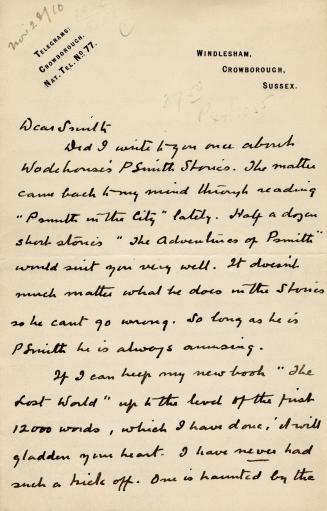 Nov 28/10
TELEGRAMS:
CROWBOROUGH.
NAT. TEL. NO. 77.
WINDLESHAM,
CROWBOROUGH,
SUSSEX.
Dear Smith
Did I write to you once about
Wodehouse's PSmith Stories. The matter
came back to my mind through reading
"Psmith in the City" lately. Half a dozen
short stories "The Adventures of Psmith"
would suit you very well. It doesn't
much matter what he does in the Stories
so he cant go wrong. So long as he is
PSmith he is always amusing.
If I can keep my new book "The
Lost World" up to the level of the first
12000 words, which I have done, it will
gladden your heart. I have never had
such a kick off. One is haunted by the